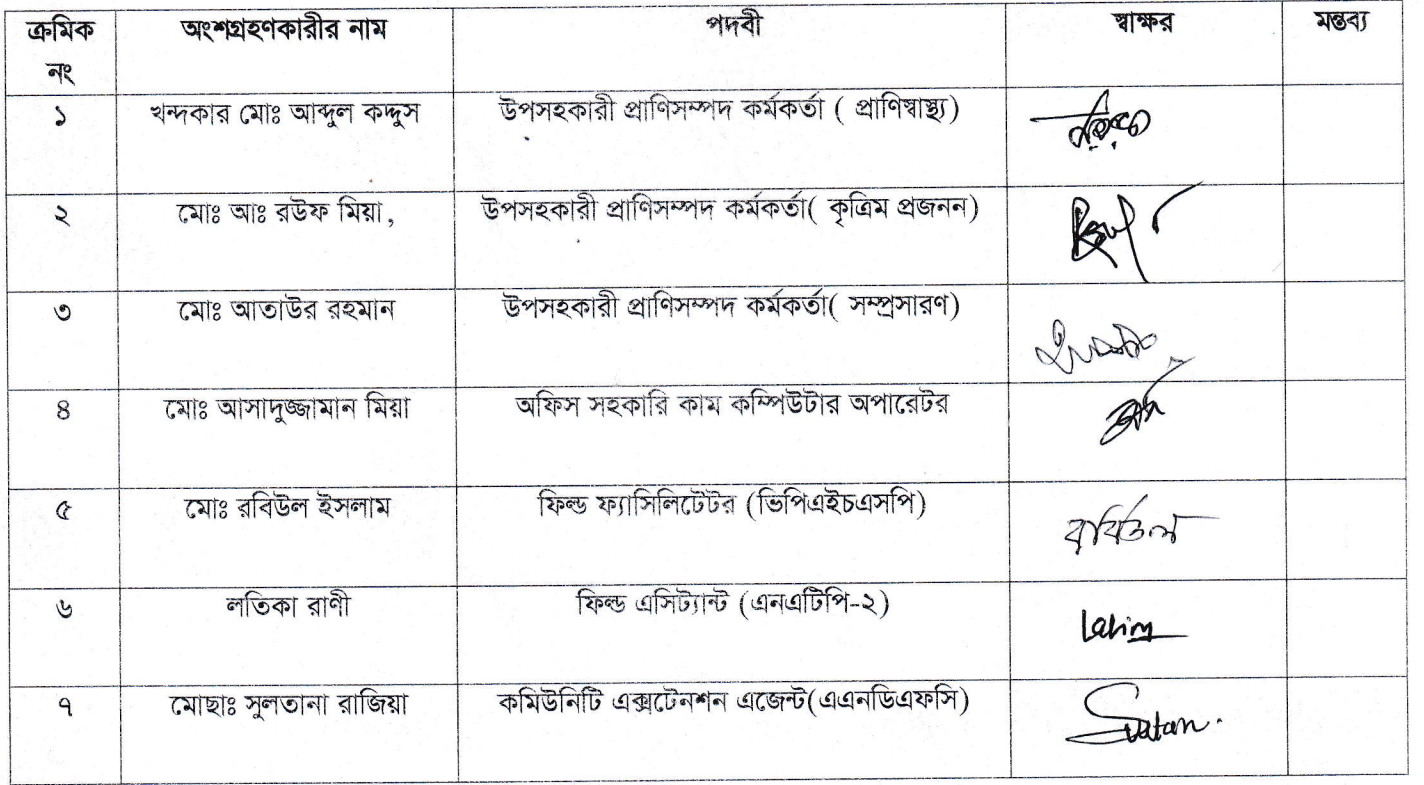 ক্রমিক নং অংশগ্রহণকারীর নাম পদবী স্বাক্ষর মন্তব্য
১ খন্দকার মোঃ আব্দুল কদ্দুস উপসহকারী প্রাণিসম্পদ কর্মকর্তা ( প্রাণিস্বাস্থ্য)
২ মোঃ আঃ রউফ মিয়া, উপসহকারী প্রাণিসম্পদ কর্মকর্তা( কৃত্রিম প্রজনন)
৩ মোঃ আতাউর রহমান উপসহকারী প্রাণিসম্পদ কর্মকর্তা( সম্প্রসারণ)
৪ মোঃ আসাদুজ্জামান মিয়া অফিস সহকারি কাম কম্পিউটার অপারেটর
৫ মোঃ রবিউল ইসলাম ফিল্ড ফ্যাসিলিটেটর (ভিপিএইচএসপি) রবিউল
৬ লতিকা রাণী ফিল্ড এসিট্যান্ট (এনএটিপি-২)
৭ মোছাঃ সুলতানা রাজিয়া কমিউনিটি এক্সটেনশন এজেন্ট(এএনডিএফসি)